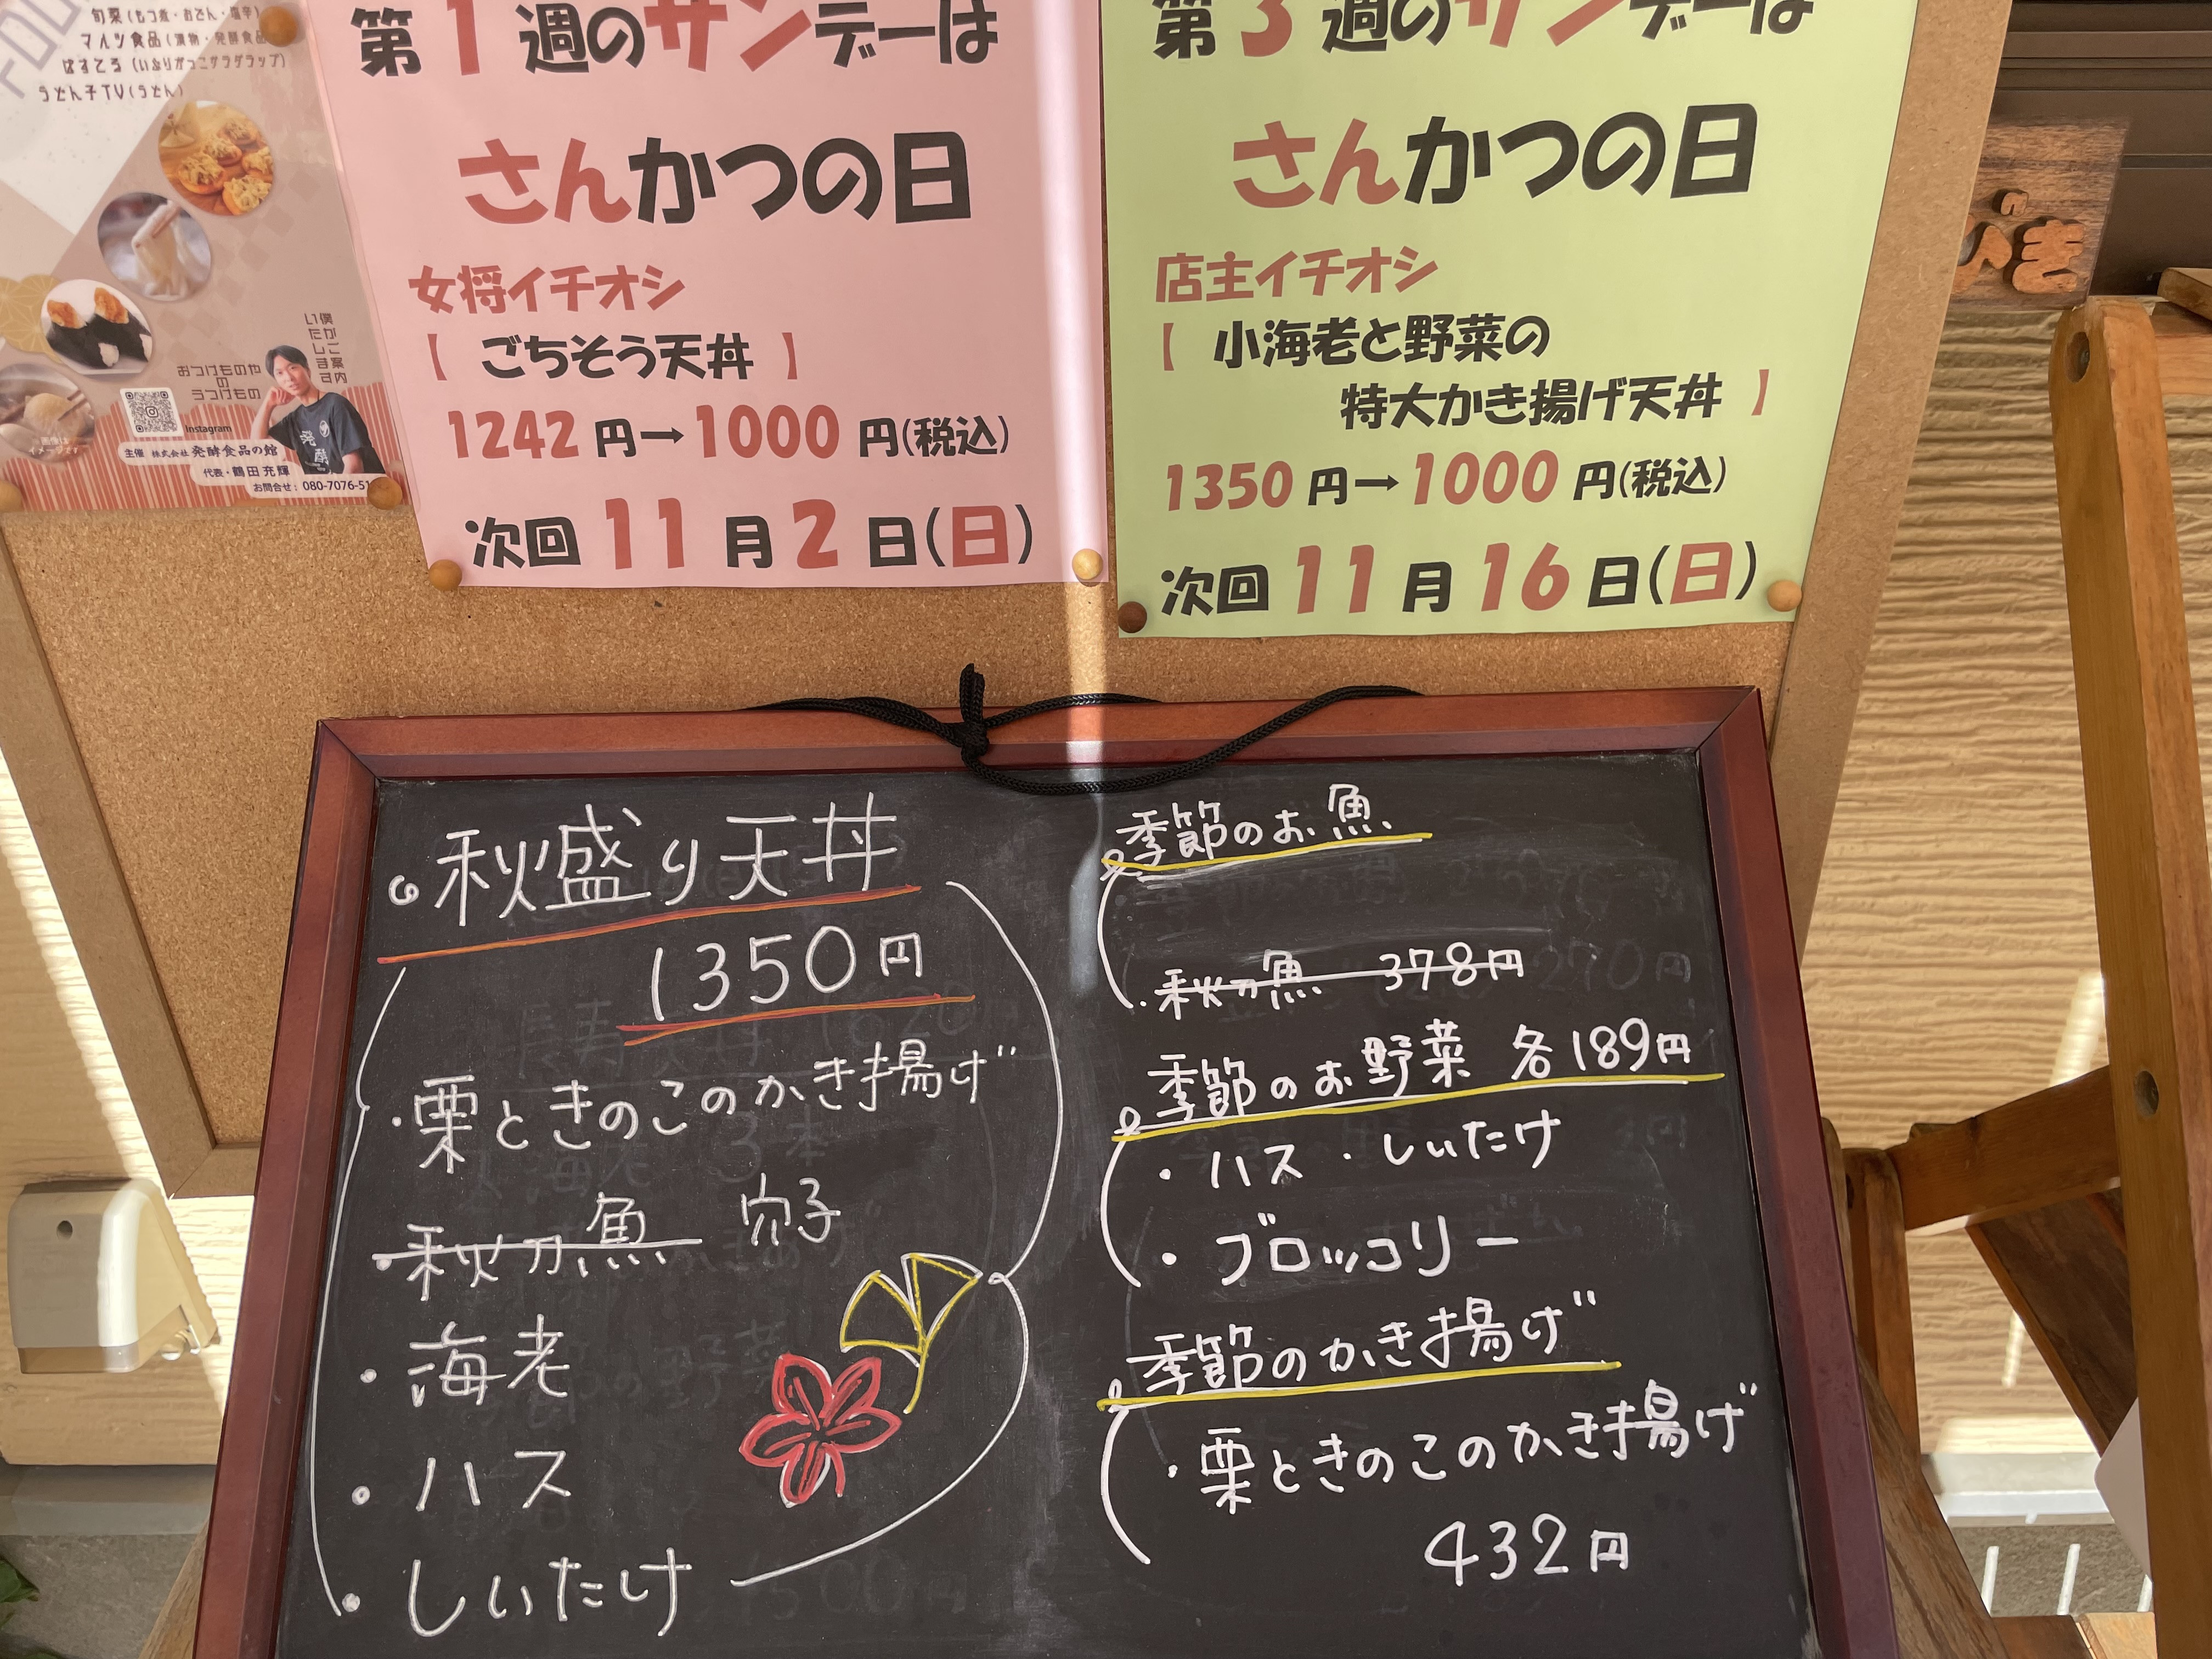 旬菜(もつ煮・おでん・塩辛)
マルツ食品(漬物・発酵食品)
はすてろ(いぶりがっこサラダラップ)
うどん子TV(うどん)
僕がご案内
いたします
おつけものや
の
うつけもの
Instagram
主催 株式会社 発酵食品の館
代表・鶴田 充輝
お問合せ: 080-7076-51
第1週のサンデーは
さんかつの日
女将イチオシ
【 ごちそう天丼 】
1242円→1000円(税込)
次回 11月2日(日)
第3週のサンデーは
さんかつの日
店主イチオシ
【 小海老と野菜の
特大かき揚げ天丼 】
1350円→1000円(税込)
次回 11月16日(日)
秋盛り天丼
1350円
・栗ときのこのかき揚げ
・秋の魚 穴子
・海老
・ハス
・しいたけ
季節のお魚
・秋の魚 378円
季節のお野菜 各189円
・ハス ・しいたけ
・ブロッコリー
季節のかき揚げ
・栗ときのこのかき揚げ
432円